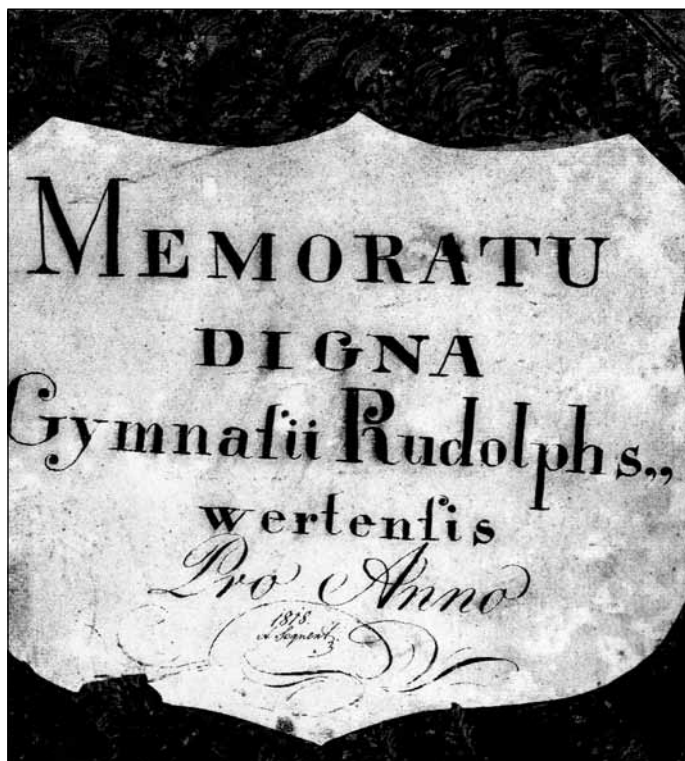 MEMORATU
DIGNA
Gymnaſii Rudolphs„
wertenſis
Pro Anno
1818.
et Sequent.